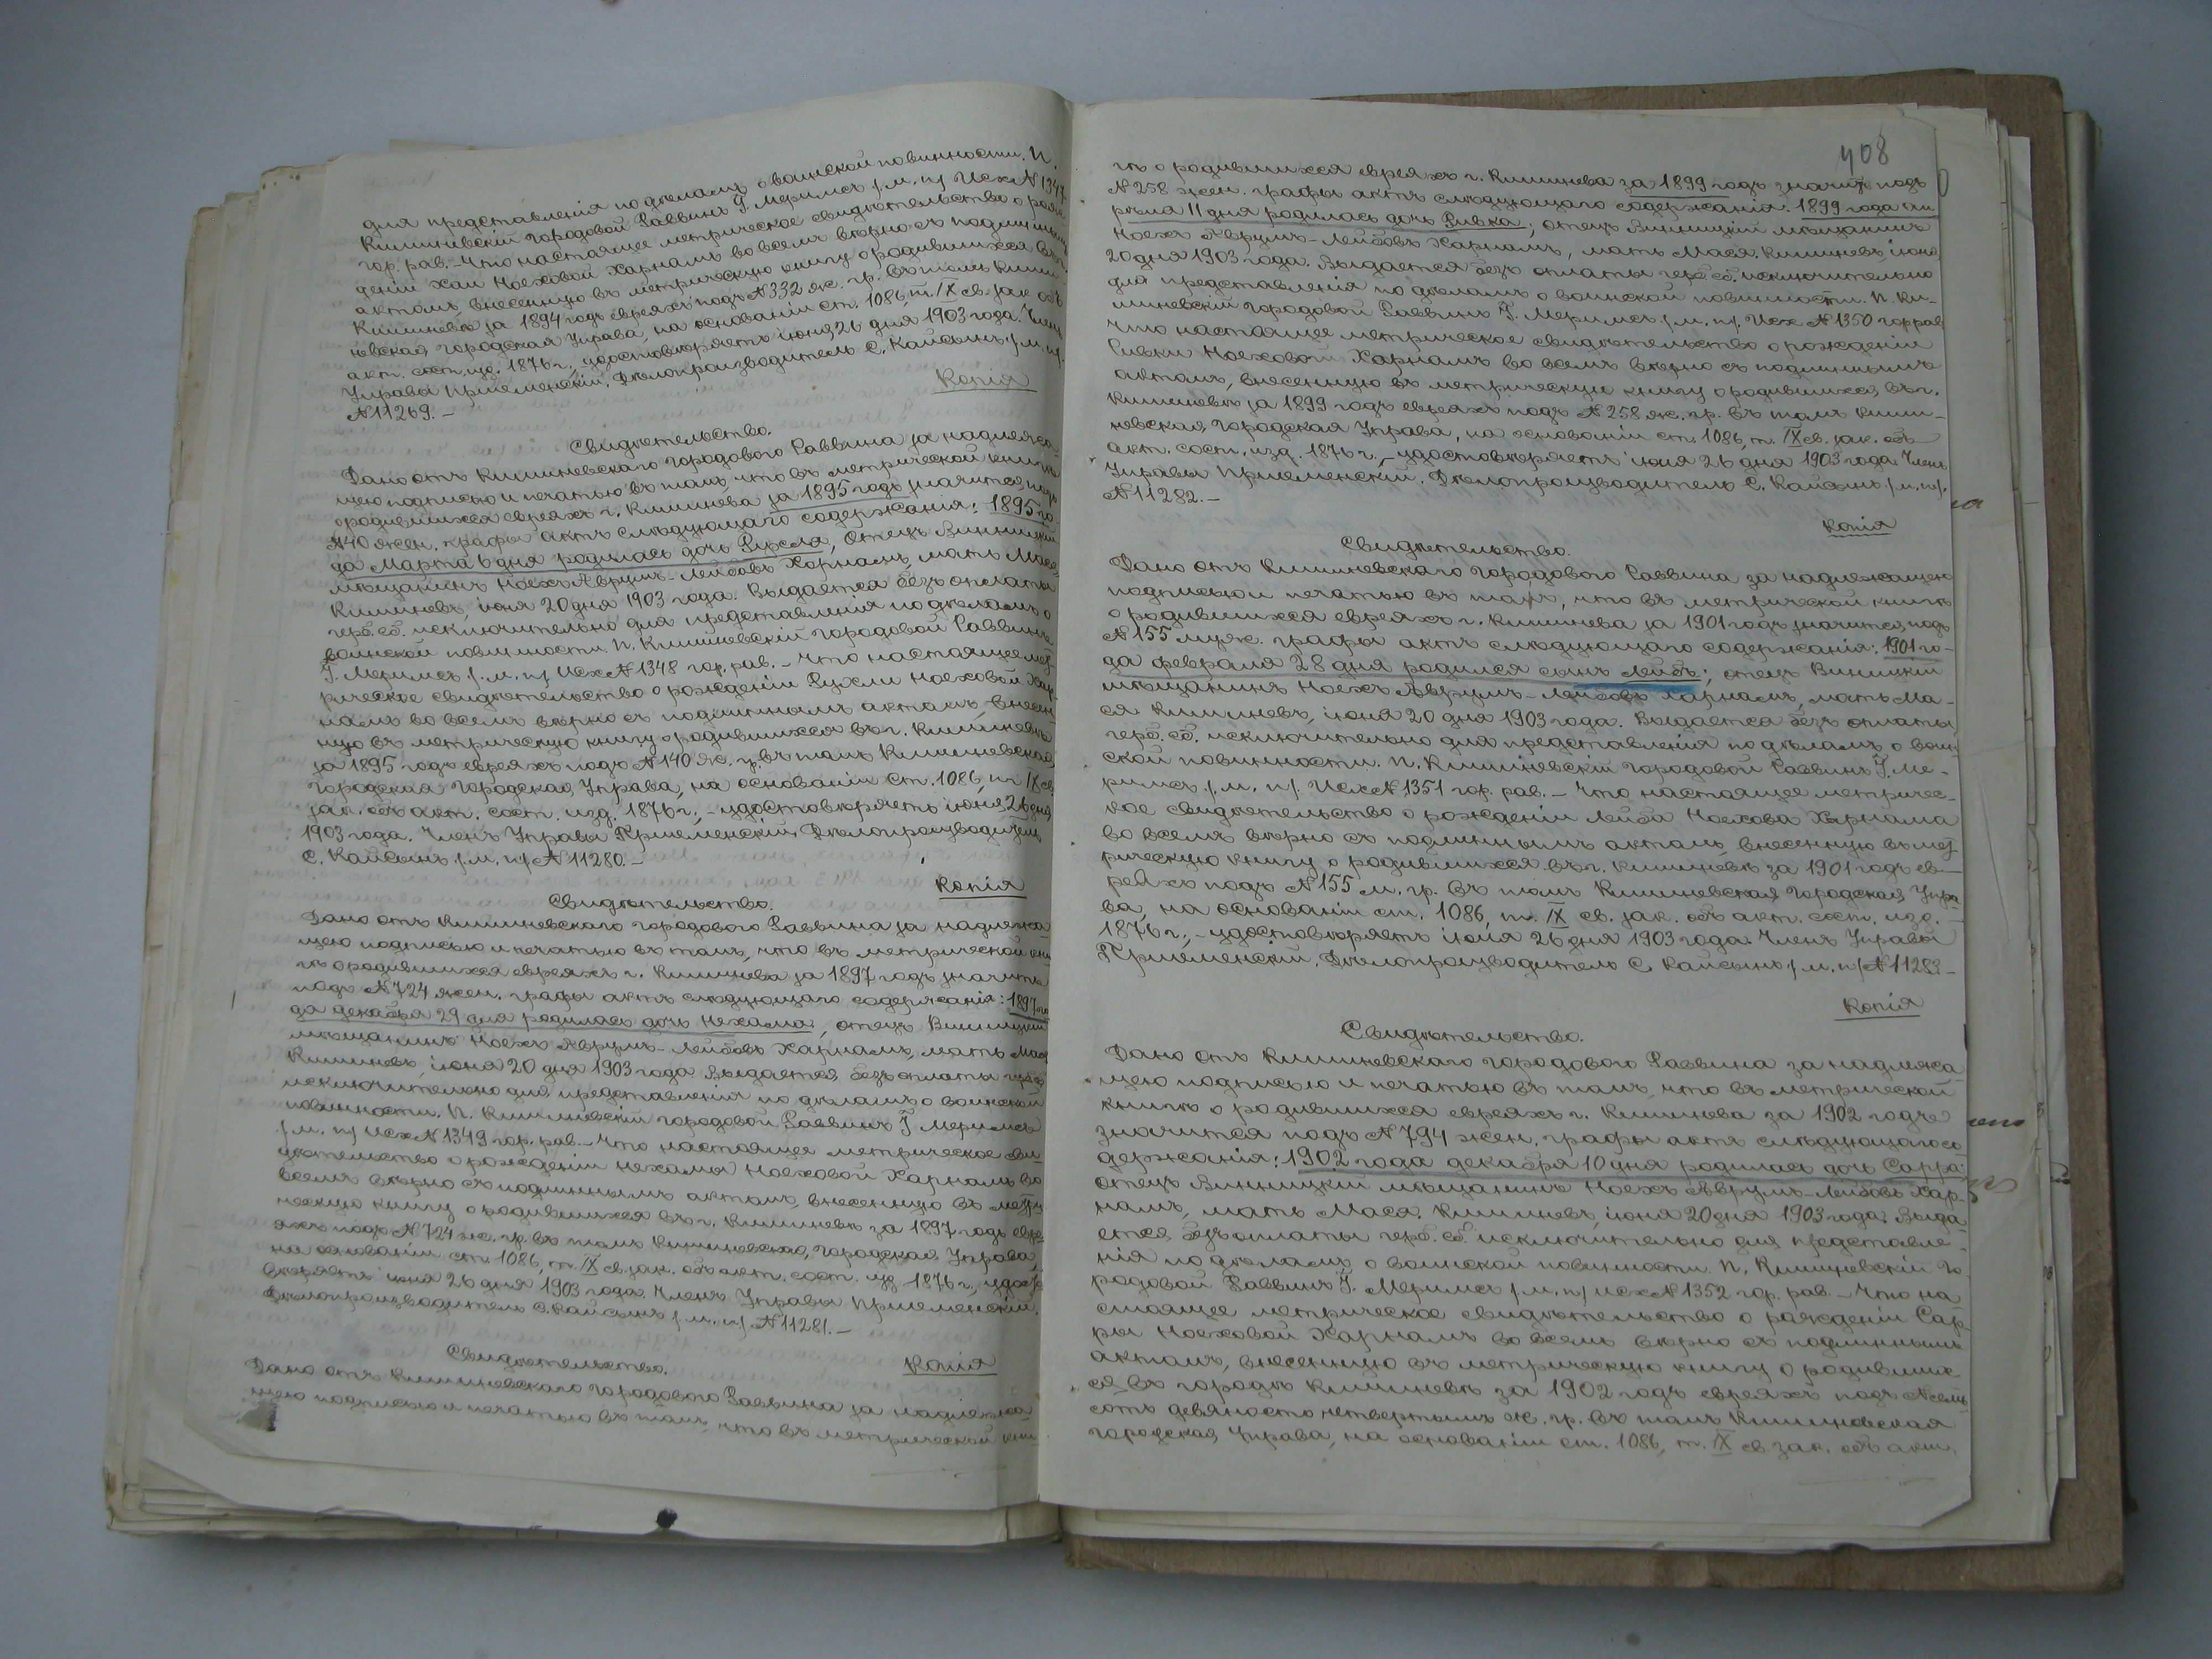 для представленія по дѣламъ о воинской повинности. П.
Кишиневскій городовой Раввинъ Г. Меримсъ /м. п./ Исх № 1347
гор. рав. – Что настоящее метрическое свидѣтельство о рож-
деніи Хаи Ноеховой Харнамъ во всемъ вѣрно съ подлиннымъ
актомъ, внесенную въ метрическую книгу о родившихся въ г.
Кишиневѣ за 1894 годъ евреяхъ подъ № 332 ж. гр. въ томъ Киши-
невская городская Управа, на основаніи ст. 1086, т. IX св. зак. объ
акт. сост. изд. 1876 г., удостовѣряетъ іюня 26 дня 1903 года. Членъ
Управы Пршеменскій. Дѣлопроизводитель С. Кайсынъ /м. п./
№ 11269. –
Копія
Свидѣтельство.
Дано отъ Кишиневскаго городового Раввина за надлежа-
щею подписью и печатью въ томъ, что въ метрической книгѣ
о родившихся евреяхъ г. Кишинева за 1895 годъ значится подъ
№ 140 жен. графы актъ слѣдующаго содержанія: 1895 го-
да Марта 6 дня родилась дочь Рухля, Отецъ Винницкій
мѣщанинъ Ноехъ Аврумъ-Лейбовъ Харнамъ, мать Мася,
Кишиневъ, іюня 20 дня 1903 года. Выдается безъ оплаты
герб. сб. исключительно для представленія по дѣламъ о
воинской повинности. П. Кишиневскій городовой Раввинъ
Г. Меримсъ /м. п./ Исх № 1348 гор. рав. – Что настоящее мет-
рическое свидѣтельство о рожденіи Рухли Ноеховой Хар-
намъ во всемъ вѣрно съ подлиннымъ актомъ, внесен-
ную въ метрическую книгу о родившихся въ г. Кишиневѣ
за 1895 годъ евреяхъ подъ № 140 ж. гр. въ томъ Кишиневская
городская Городская Управа, на основаніи ст. 1086, т. IX св.
зак. объ акт. сост. изд. 1876 г., – удостовѣряетъ іюня 26 дня
1903 года. Членъ Управы Пршеменскій. Дѣлопроизводитель
С. Кайсынъ /м. п./ № 11280. –
Копія
Свидѣтельство.
Дано отъ Кишиневскаго городового Раввина за надлежа-
щею подписью и печатью въ томъ, что въ метрической кни-
гѣ о родившихся евреяхъ г. Кишинева за 1897 годъ значится
подъ № 724 жен. графы актъ слѣдующаго содержанія: 1897 го-
да декабря 29 дня родилась дочь Нехама, отецъ Винницкій
мѣщанинъ Ноехъ Аврумъ-Лейбовъ Харнамъ, мать Мася
Кишиневъ, іюня 20 дня 1903 года. Выдается безъ оплаты
исключительно для представленія по дѣламъ о воинской
повинности. П. Кишиневскій городовой Раввинъ Г Меримсъ
/м. п./ Исх № 1349 гор. рав. – Что настоящее метрическое сви-
дѣтельство о рожденіи Нехамы Ноеховой Харнамъ во
всемъ вѣрно съ подлиннымъ актомъ, внесенную въ метри-
ческую книгу о родившихся въ г. Кишиневѣ за 1897 годъ евре-
яхъ подъ № 724 ж. гр. въ томъ Кишиневская Городская Управа,
на основаніи ст. 1086, т. IX св. зак. объ акт. сост. изд. 1876 г., удост-
вѣряетъ іюня 26 дня 1903 года. Членъ Управы Пршеменскій.
Дѣлопроизводитель С. Кайсынъ /м. п./ № 11281. –
Копія
Свидѣтельство.
Дано отъ Кишиневскаго городового Раввина за надлежа-
щею подписью и печатью въ томъ, что въ метрической кни-
408
гѣ о родившихся евреяхъ г. Кишинева за 1899 годъ значится подъ
№ 258 жен. графы актъ слѣдующаго содержанія: 1899 года ап-
рѣля 11 дня родилась дочь Ривка; отецъ Винницкій мѣщанинъ
Ноехъ Аврумъ-Лейбовъ Харнамъ, мать Мася. Кишиневъ, іюня
20 дня 1903 года. Выдается безъ оплаты герб. сб. исключительно
для представленія по дѣламъ о воинской повинности. П. Ки-
шиневскій городовой Раввинъ Г. Меримсъ /м. п./. Исх № 1350 гор рав
Что настоящее метрическое свидѣтельство о рожденіи
Ривки Ноеховой Харнамъ во всемъ вѣрно съ подлиннымъ
актомъ, внесенную въ метрическую книгу о родившихся въ г.
Кишиневѣ за 1899 годъ евреяхъ подъ № 258 ж. гр. въ томъ Киши-
невская Городская Управа, на основаніи ст. 1086, т. IX св. зак. объ
акт. сост. изд. 1876 г., – удостовѣряетъ іюня 26 дня 1903 года. Членъ
Управы Пршеменскій. Дѣлопроизводитель С. Кайсынъ /м. п./.
№ 11282. –
Копія
Свидѣтельство.
Дано отъ Кишиневскаго городового Раввина за надлежащею
подписью и печатью въ томъ, что въ метрической книгѣ
о родившихся евреяхъ г. Кишинева за 1901 годъ значится подъ
№ 155 муж. графы актъ слѣдующаго содержанія: 1901 го-
да февраля 28 дня родился сынъ Лейбъ; отецъ Винницкій
мѣщанинъ Ноехъ Аврумъ-Лейбовъ Харнамъ, мать Ма-
ся Кишиневъ, іюня 20 дня 1903 года. Выдается безъ оплаты
герб. сб. исключительно для представленія по дѣламъ о воин-
ской повинности. П. Кишиневскій городовой Раввинъ Г. Ме-
римсъ /м. п./. Исх № 1351 гор. рав. – Что настоящее метричес-
кое свидѣтельство о рожденіи Лейба Ноехова Харнама
во всемъ вѣрно съ подлиннымъ актомъ, внесенную въ мет-
рическую книгу о родившихся въ г. Кишиневѣ за 1901 годъ ев-
реяхъ подъ № 155 м. гр. въ томъ Кишиневская Городская Упра-
ва, на основаніи ст. 1086, т. IX св. зак. объ акт. сост. изд.
1876 г., – удостовѣряетъ іюня 26 дня 1903 года. Членъ Управы
Пршеменскій. Дѣлопроизводитель С. Кайсынъ /м. п./ № 11283 –
Копія
Свидѣтельство.
Дано отъ Кишиневскаго городового Раввина за надлежа-
щею подписью и печатью въ томъ, что въ метрической
книгѣ о родившихся евреяхъ г. Кишинева за 1902 годъ
значится подъ № 794 жен. графы актъ слѣдующаго со-
держанія: 1902 года декабря 10 дня родилась дочь Сарра;
отецъ Винницкій мѣщанинъ Ноехъ Аврумъ-Лейбовъ Хар-
намъ, мать Мася. Кишиневъ, іюня 20 дня 1903 года. Выда-
ется безъ оплаты герб. сб. исключительно для представле-
нія по дѣламъ о воинской повинности. П. Кишиневскій Го-
родовой Раввинъ Г. Меримсъ /м. п./ исх № 1352 гор. рав. – Что на-
стоящее метрическое свидѣтельство о рожденіи Сар-
ры Ноеховой Харнамъ во всемъ вѣрно съ подлиннымъ
актомъ, внесенную въ метрическую книгу о родивших-
ся въ городѣ Кишиневѣ за 1902 годъ евреяхъ подъ № семь-
сотъ девяносто четвертымъ ж. гр. въ томъ Кишиневская
городская Управа, на основаніи ст. 1086, т. IX св. зак. объ акт.